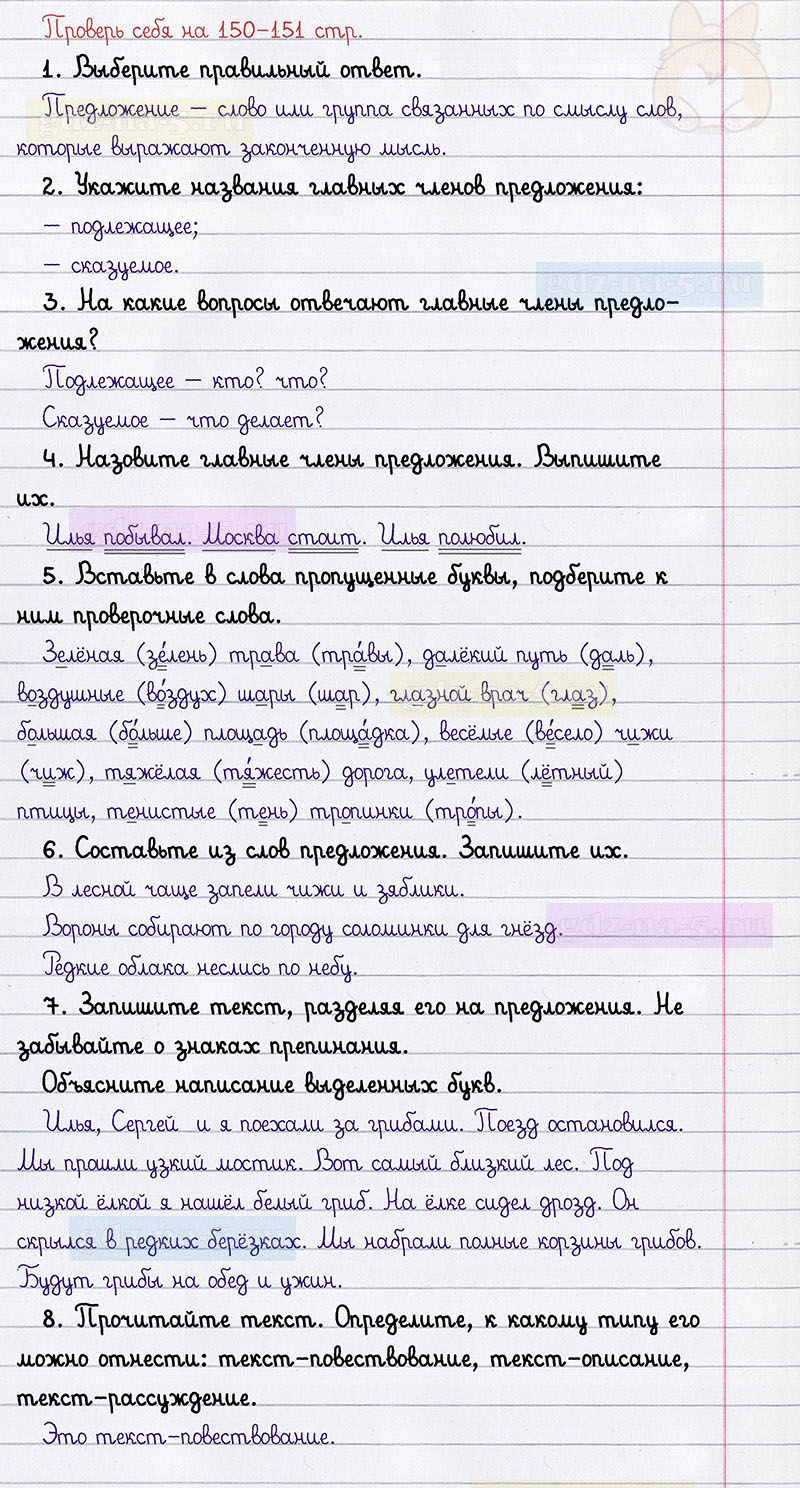 Проверь себя на 150-151 стр.
1. Выберите правильный ответ.
Предложение – слово или группа связанных по смыслу слов,
gdz-na-5.ru
которые выражают законченную мысль.
2. Укажите названия главных членов предложения:
– подлежащее;
– сказуемое.
gdz-na-5.ru
3. На какие вопросы отвечают главные члены предло-
жения?
Подлежащее – кто? что?
Сказуемое – что делает?
4. Назовите главные члены предложения. Выпишите
их.
Илья побывал. Москва стоит. Илья полюбил.
5. Вставьте в слова пропущенные буквы, подберите к
ним проверочные слова.
Зелёная (зе́лень) трава (тра́вы), далёкий путь (даль),
воздушные (во́здух) шары (шар), глазной врач (глаз),
большая (бо́льше) площадь (площа́дка), весёлые (ве́село) чижи
(чиж), тяжёлая (тя́жесть) дорога, улетели (лётный)
птицы, тенистые (тень) тропинки (тро́пы).
6. Составьте из слов предложения. Запишите их.
В лесной чаще запели чижи и зяблики.
Вороны собирают по городу соломинки для гнёзд.
gdz-na-5.ru
Редкие облака неслись по небу.
7. Запишите текст, разделяя его на предложения. Не
забывайте о знаках препинания.
Объясните написание выделенных букв.
Илья, Сергей и я поехали за грибами. Поезд остановился.
Мы прошли узкий мостик. Вот самый близкий лес. Под
низкой ёлкой я нашёл белый гриб. На ёлке сидел дрозд. Он
скрылся в редких берёзках. Мы набрали полные корзины грибов.
Будут грибы на обед и ужин.
8. Прочитайте текст. Определите, к какому типу его
можно отнести: текст-повествование, текст-описание,
текст-рассуждение.
Это текст-повествование.